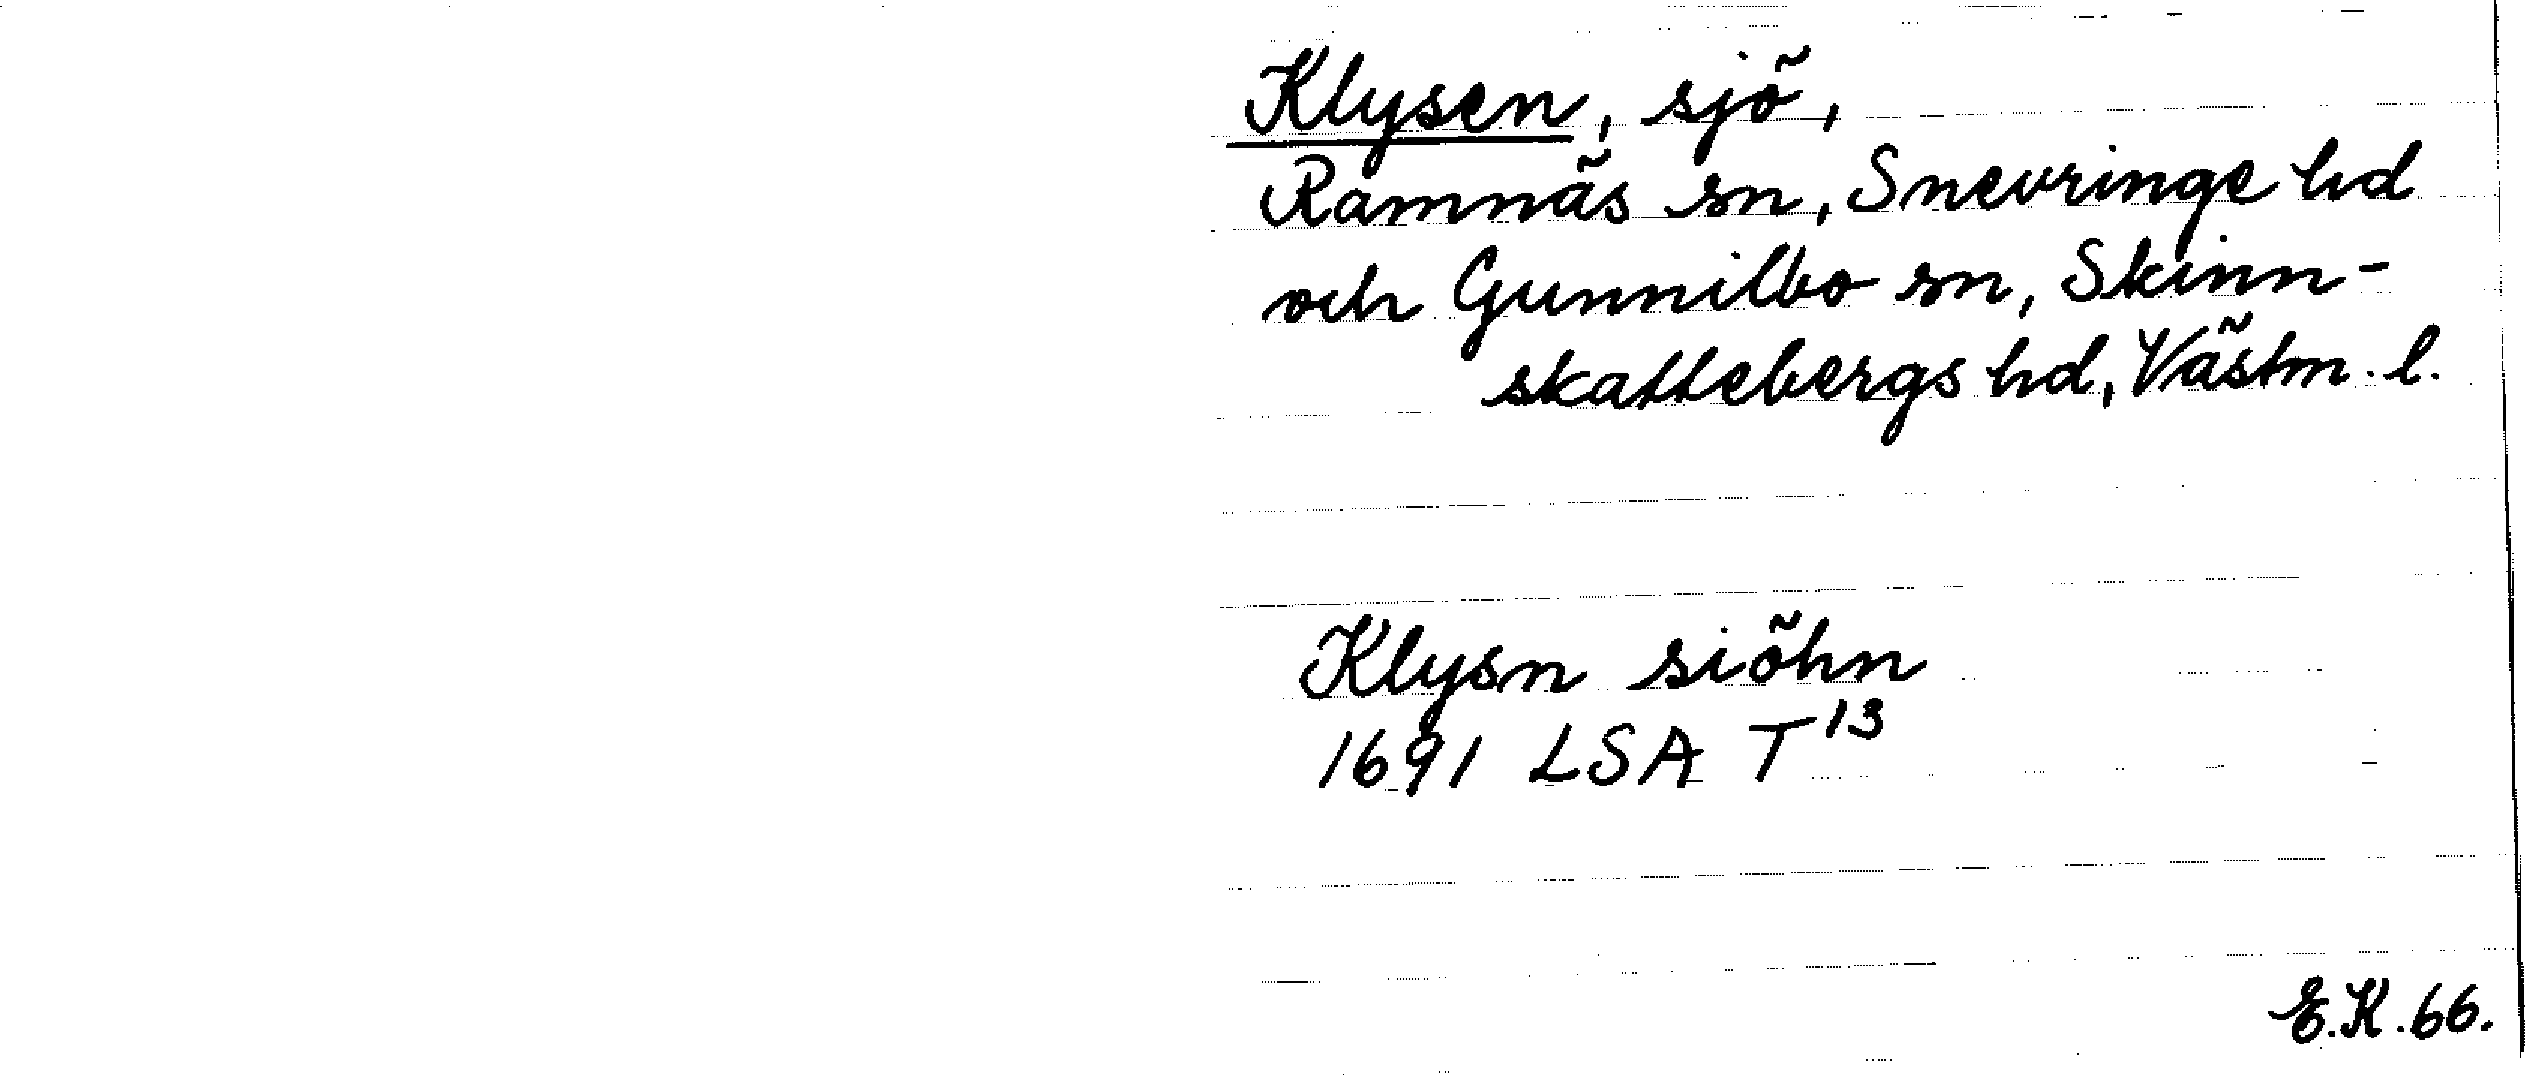 Klysen, sjö,
Ramnäs sn, Snevringe hd
och Gunnilbo sn, Skinn-
skattebergs hd, Västm. l.
Klysn siöhn
1691 LSA T¹³
E.K.66.